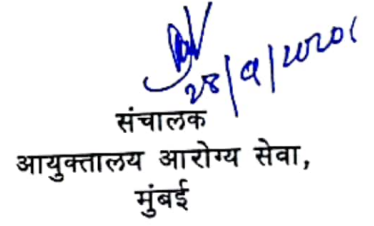 28/9/2020
संचालक
आयुक्तालय आरोग्य सेवा,
मुंबई